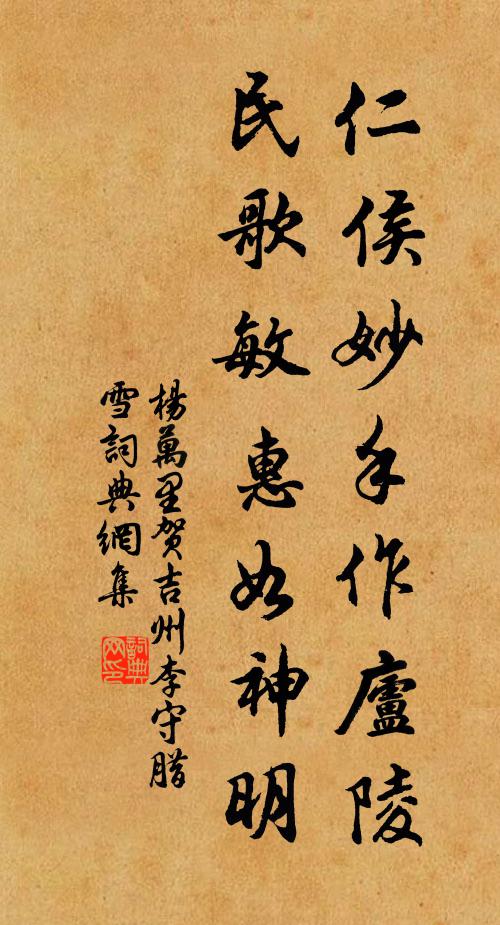 仁侯妙手作廬陵
民歌敏惠如神明
楊萬里賀吉州李守腊
雪詞典網集
詞典网印